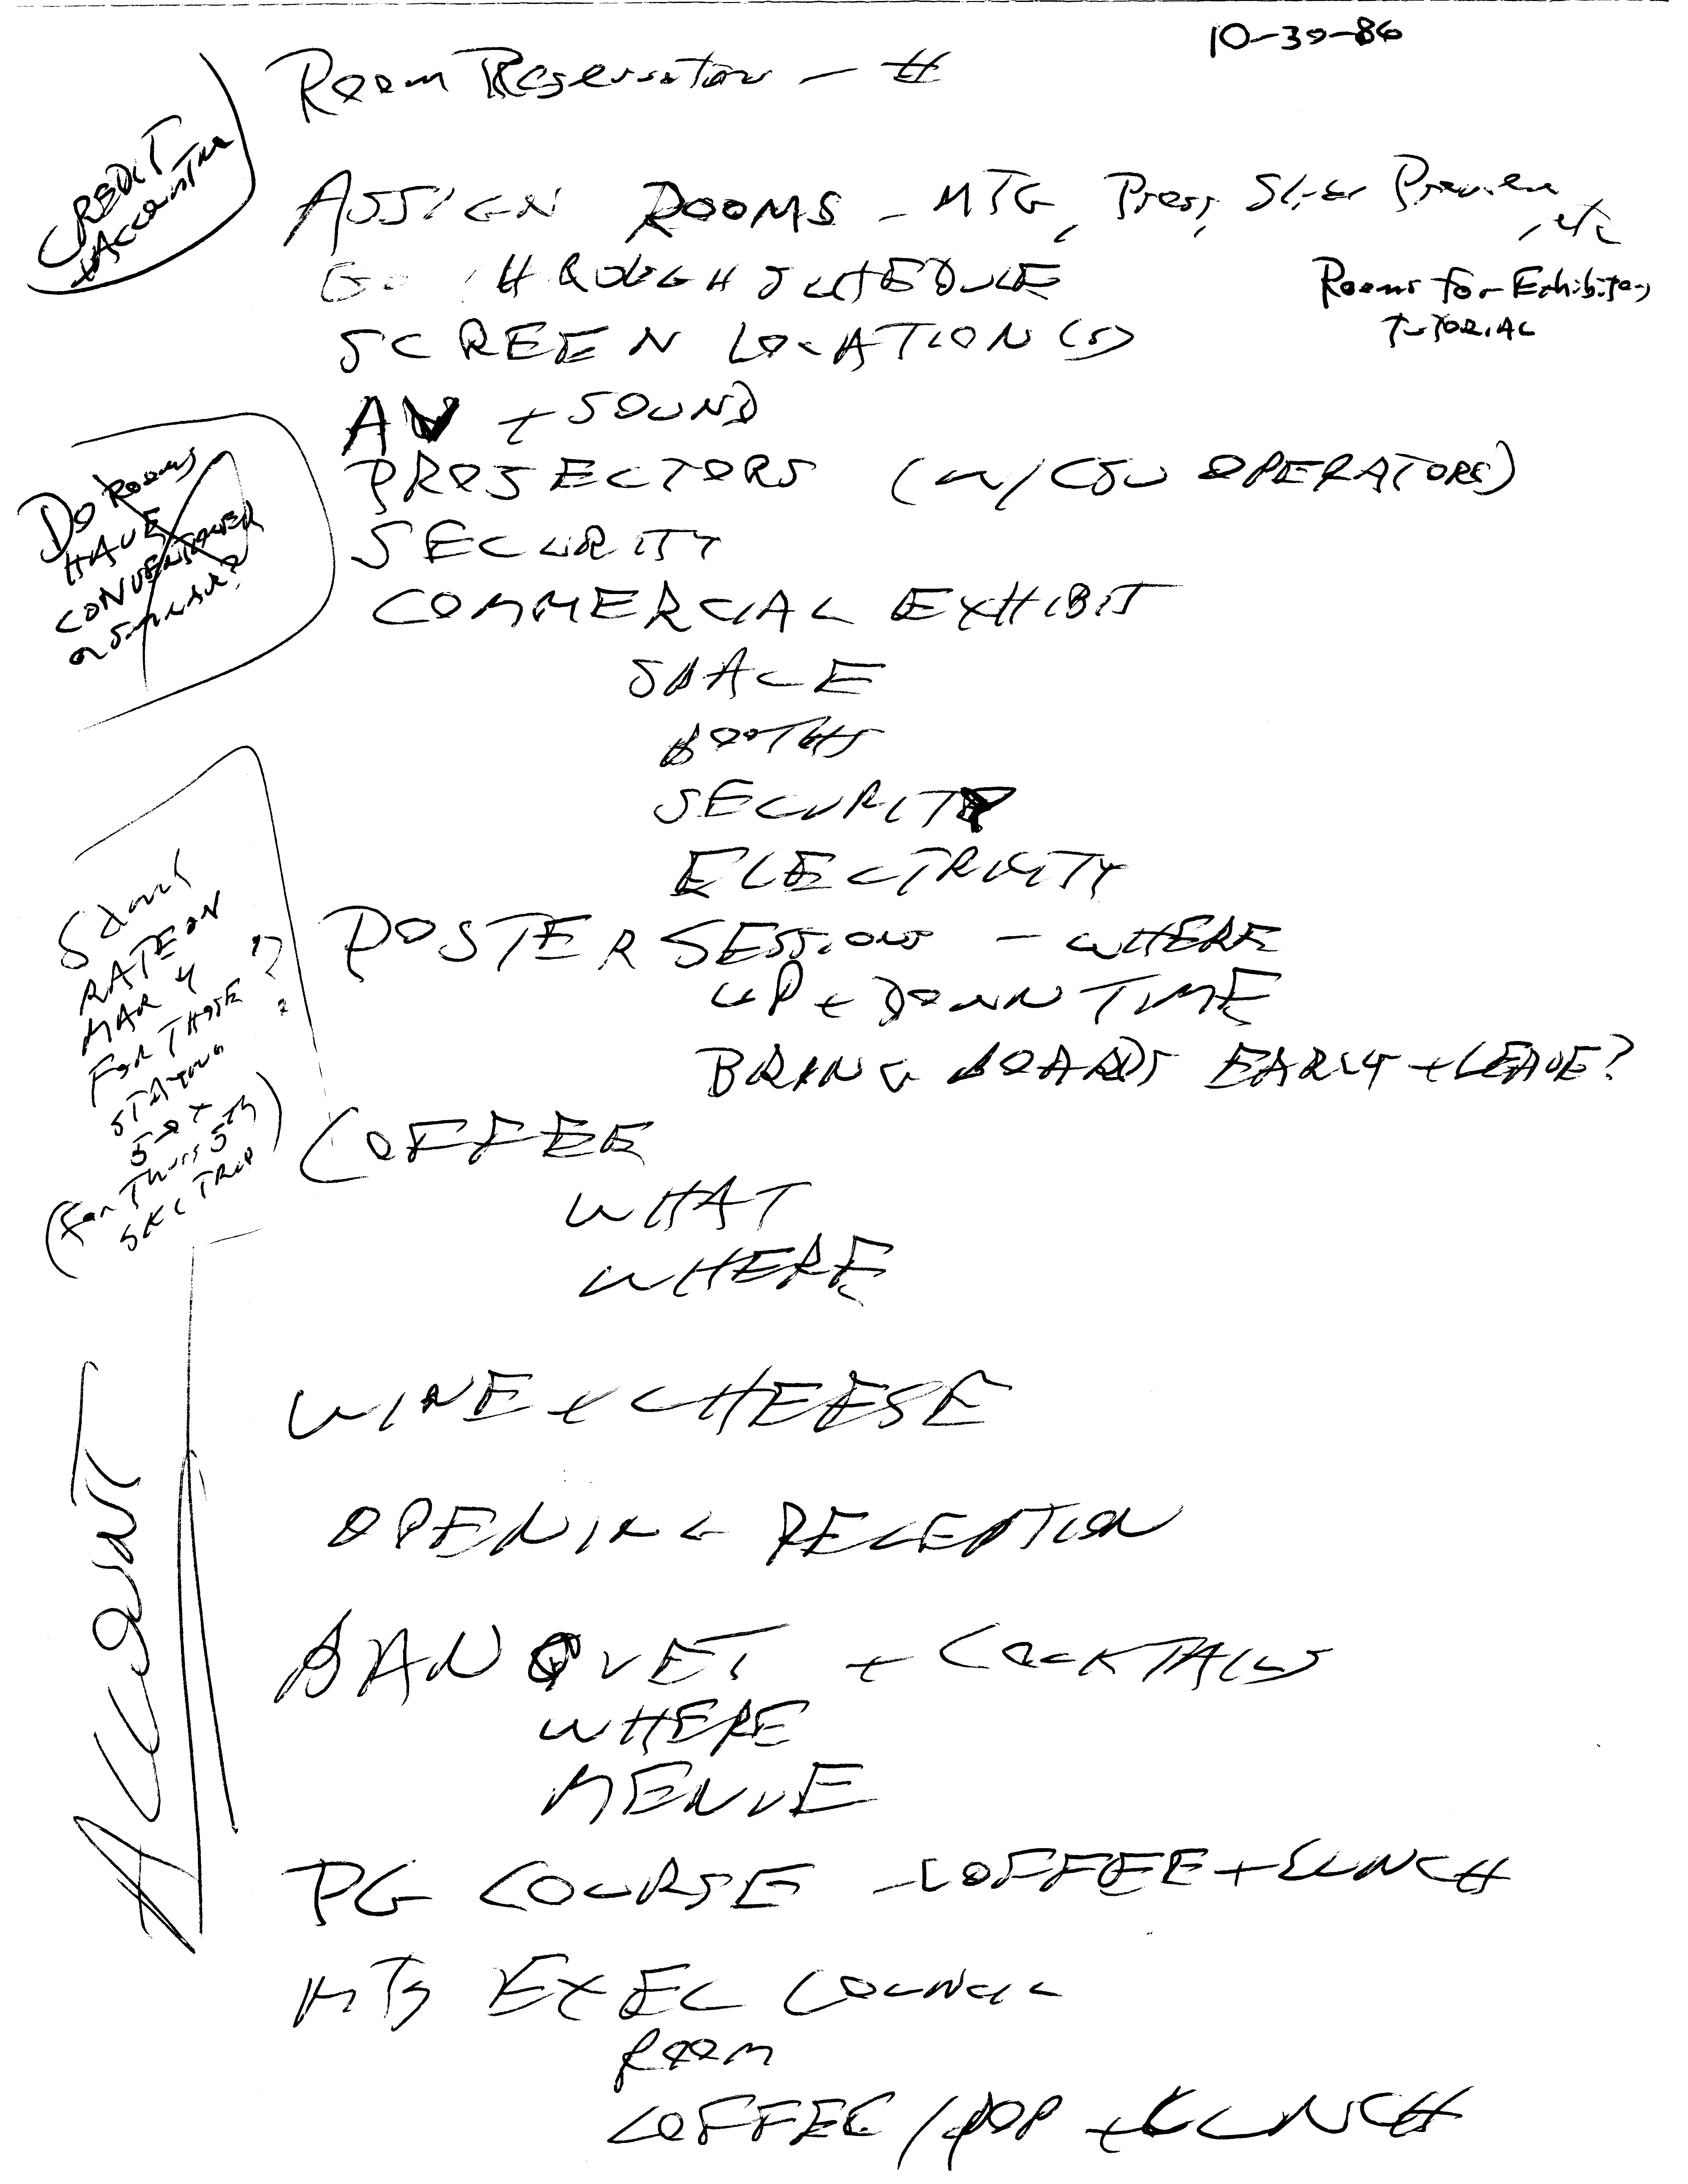 10-30-86
Room Reservation - #
CREDIT
+ Accounting
ASSIGN ROOMS - MTG, Press, Slide Preview, etc
Rooms for Exhibitors
TUTORIAL
Go THROUGH SCHEDULE
SCREEN LOCATION(S)
AV + SOUND
PROJECTORS (w/CSU OPERATORS)
SECURITY
Do Rooms
HAVE
CONVENTIONER
COMMERCIAL EXHIBIT
SPACE
BOOTHS
SECURITY
ELECTRICITY
RATE ON
MAR 4
FOR THOSE
STAYING
(for Thurs 5th
SKI TRIP)
POSTER SESSIONS - WHERE
UP + DOWN TIME
BRING BOARDS EARLY + LEAVE?
COFFEE
WHAT
WHERE
WINE + CHEESE
OPENING RECEPTION
ACCOUNT
BANQUET + COCKTAILS
WHERE
MENUE
PG COURSE - COFFEE + LUNCH
MTG EXEC COUNCIL
ROOM
COFFEE / POP + LUNCH